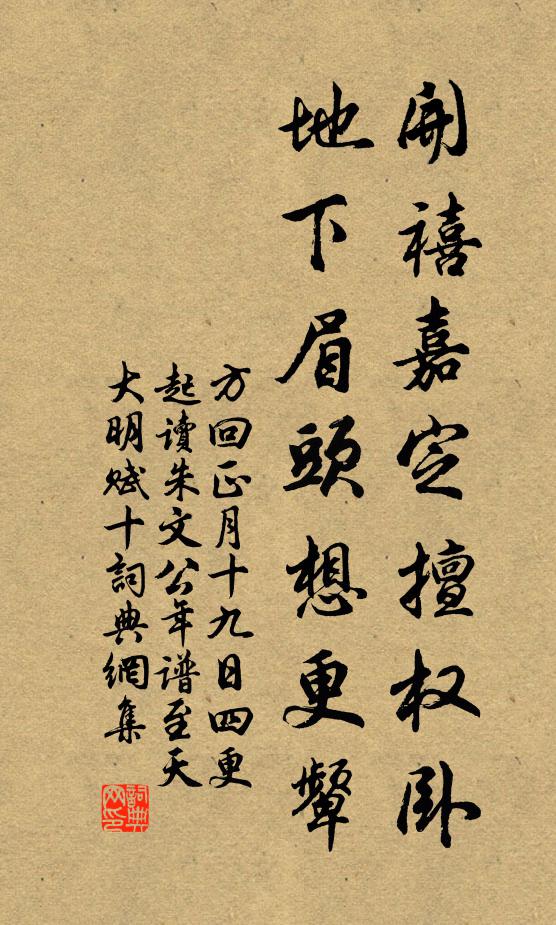 開禧嘉定擅权卧
地下眉頭想更颦
方回正月十九日四更
起讀朱文公年谱至天
大明赋十詞典網集
詞典网印